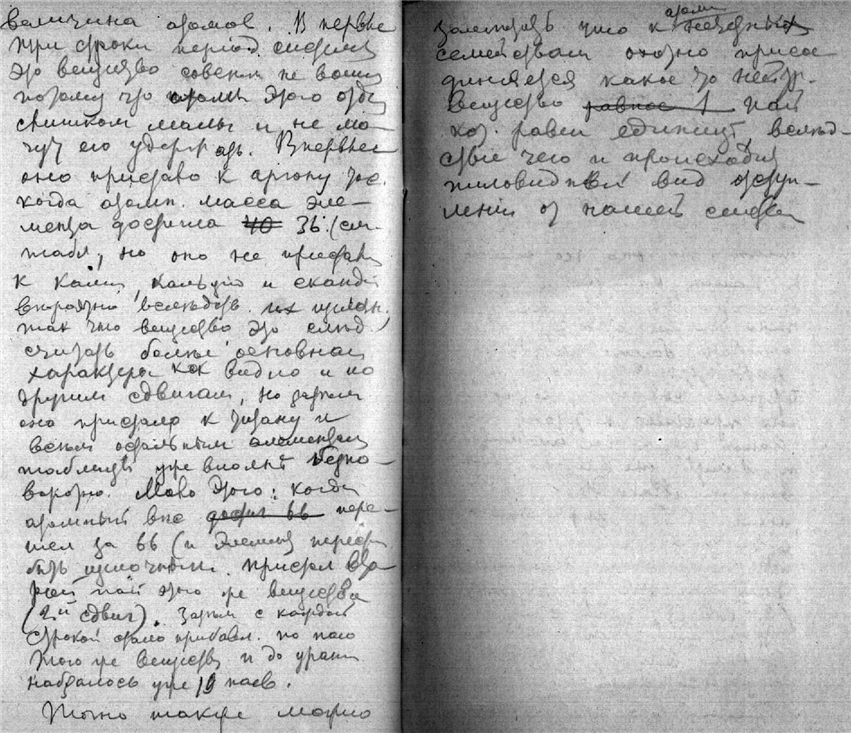 величина атомов. В первые
три строки период. системы
это вещество совсем не вошло
потому что атомы этого отде
слишком малы и не мо-
гут его удержать. Впервые
оно пристало к аргону
когда атомн. масса эле-
мента достигла 40 36 (см.
табл), но оно не пристало
к калию, кальцию и скандию
вероятно вследств. их щелочн.,
так что вещество это след.
считать более основнаго
характера как видно и по
другим сдвигам, но затем
оно пристало к титану и
всем остальным элементам
таблицы уже вполне безпо-
воротно. Мало этого: когда
атомный вес достиг 66 пере-
шел за 66 (и элемент перестал
быть щелочным пристал вто
рой пай этого же вещества
(2й сдвиг). Затем с каждой
строкой стало прибавл. по паю
того же вещества и до урана
набралось уже 10 паев.
Точно также можно
заметить что к атомам нечетных
семействам охотно присое
диняется какое то нейтр.
вещество равное 1 пай
кот. равен единице вслед-
ствие чего и происходит
пиловидный вид отступ-
ления от нашей